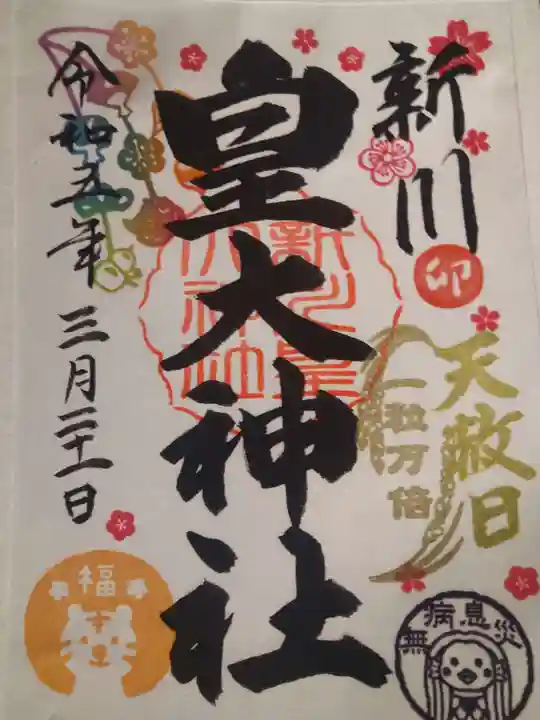 新川
卯
天赦日
一粒万倍
皇大神社
新川皇大神社
令和五年
三月二十一日
福
無病息災